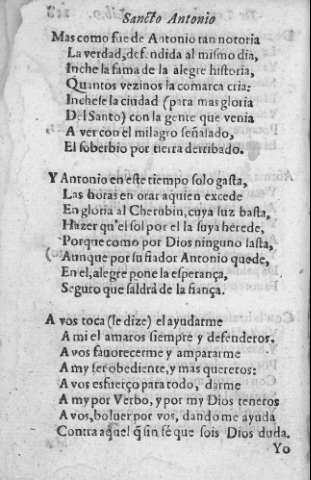 Sancto Antonio
Mas como fue de Antonio tan notoria
La verdad, defendida al mismo dia,
Inche la fama de la alegre historia,
Quantos vezinos la comarca cria:
Inchese la ciudad (para mas gloria
Del Santo) con la gente que venia
A ver con el milagro señalado,
El soberbio por tierra derribado.
Y Antonio en este tiempo solo gasta,
Las horas en orar a quien excede
En gloria al Cherubin, cuya luz basta,
Hazer qu'el sol por el la suya herede,
Porque como por Dios ninguno lasta,
Aunque por su fiador Antonio quede,
En el, alegre pone la esperança,
Seguro que saldrà de la fiança.
A vos toca (le dize) el ayudarme
A mi el amaros siempre y defenderos,
A vos fauorecerme y ampararme
A my ser obediente, y mas quereros:
A vos esfuerço para todo, darme
A my por Verbo, y por my Dios teneros
A vos, boluer por vos, dandome ayuda
Contra aquel q̃ sin fé que sois Dios duda.
Yo